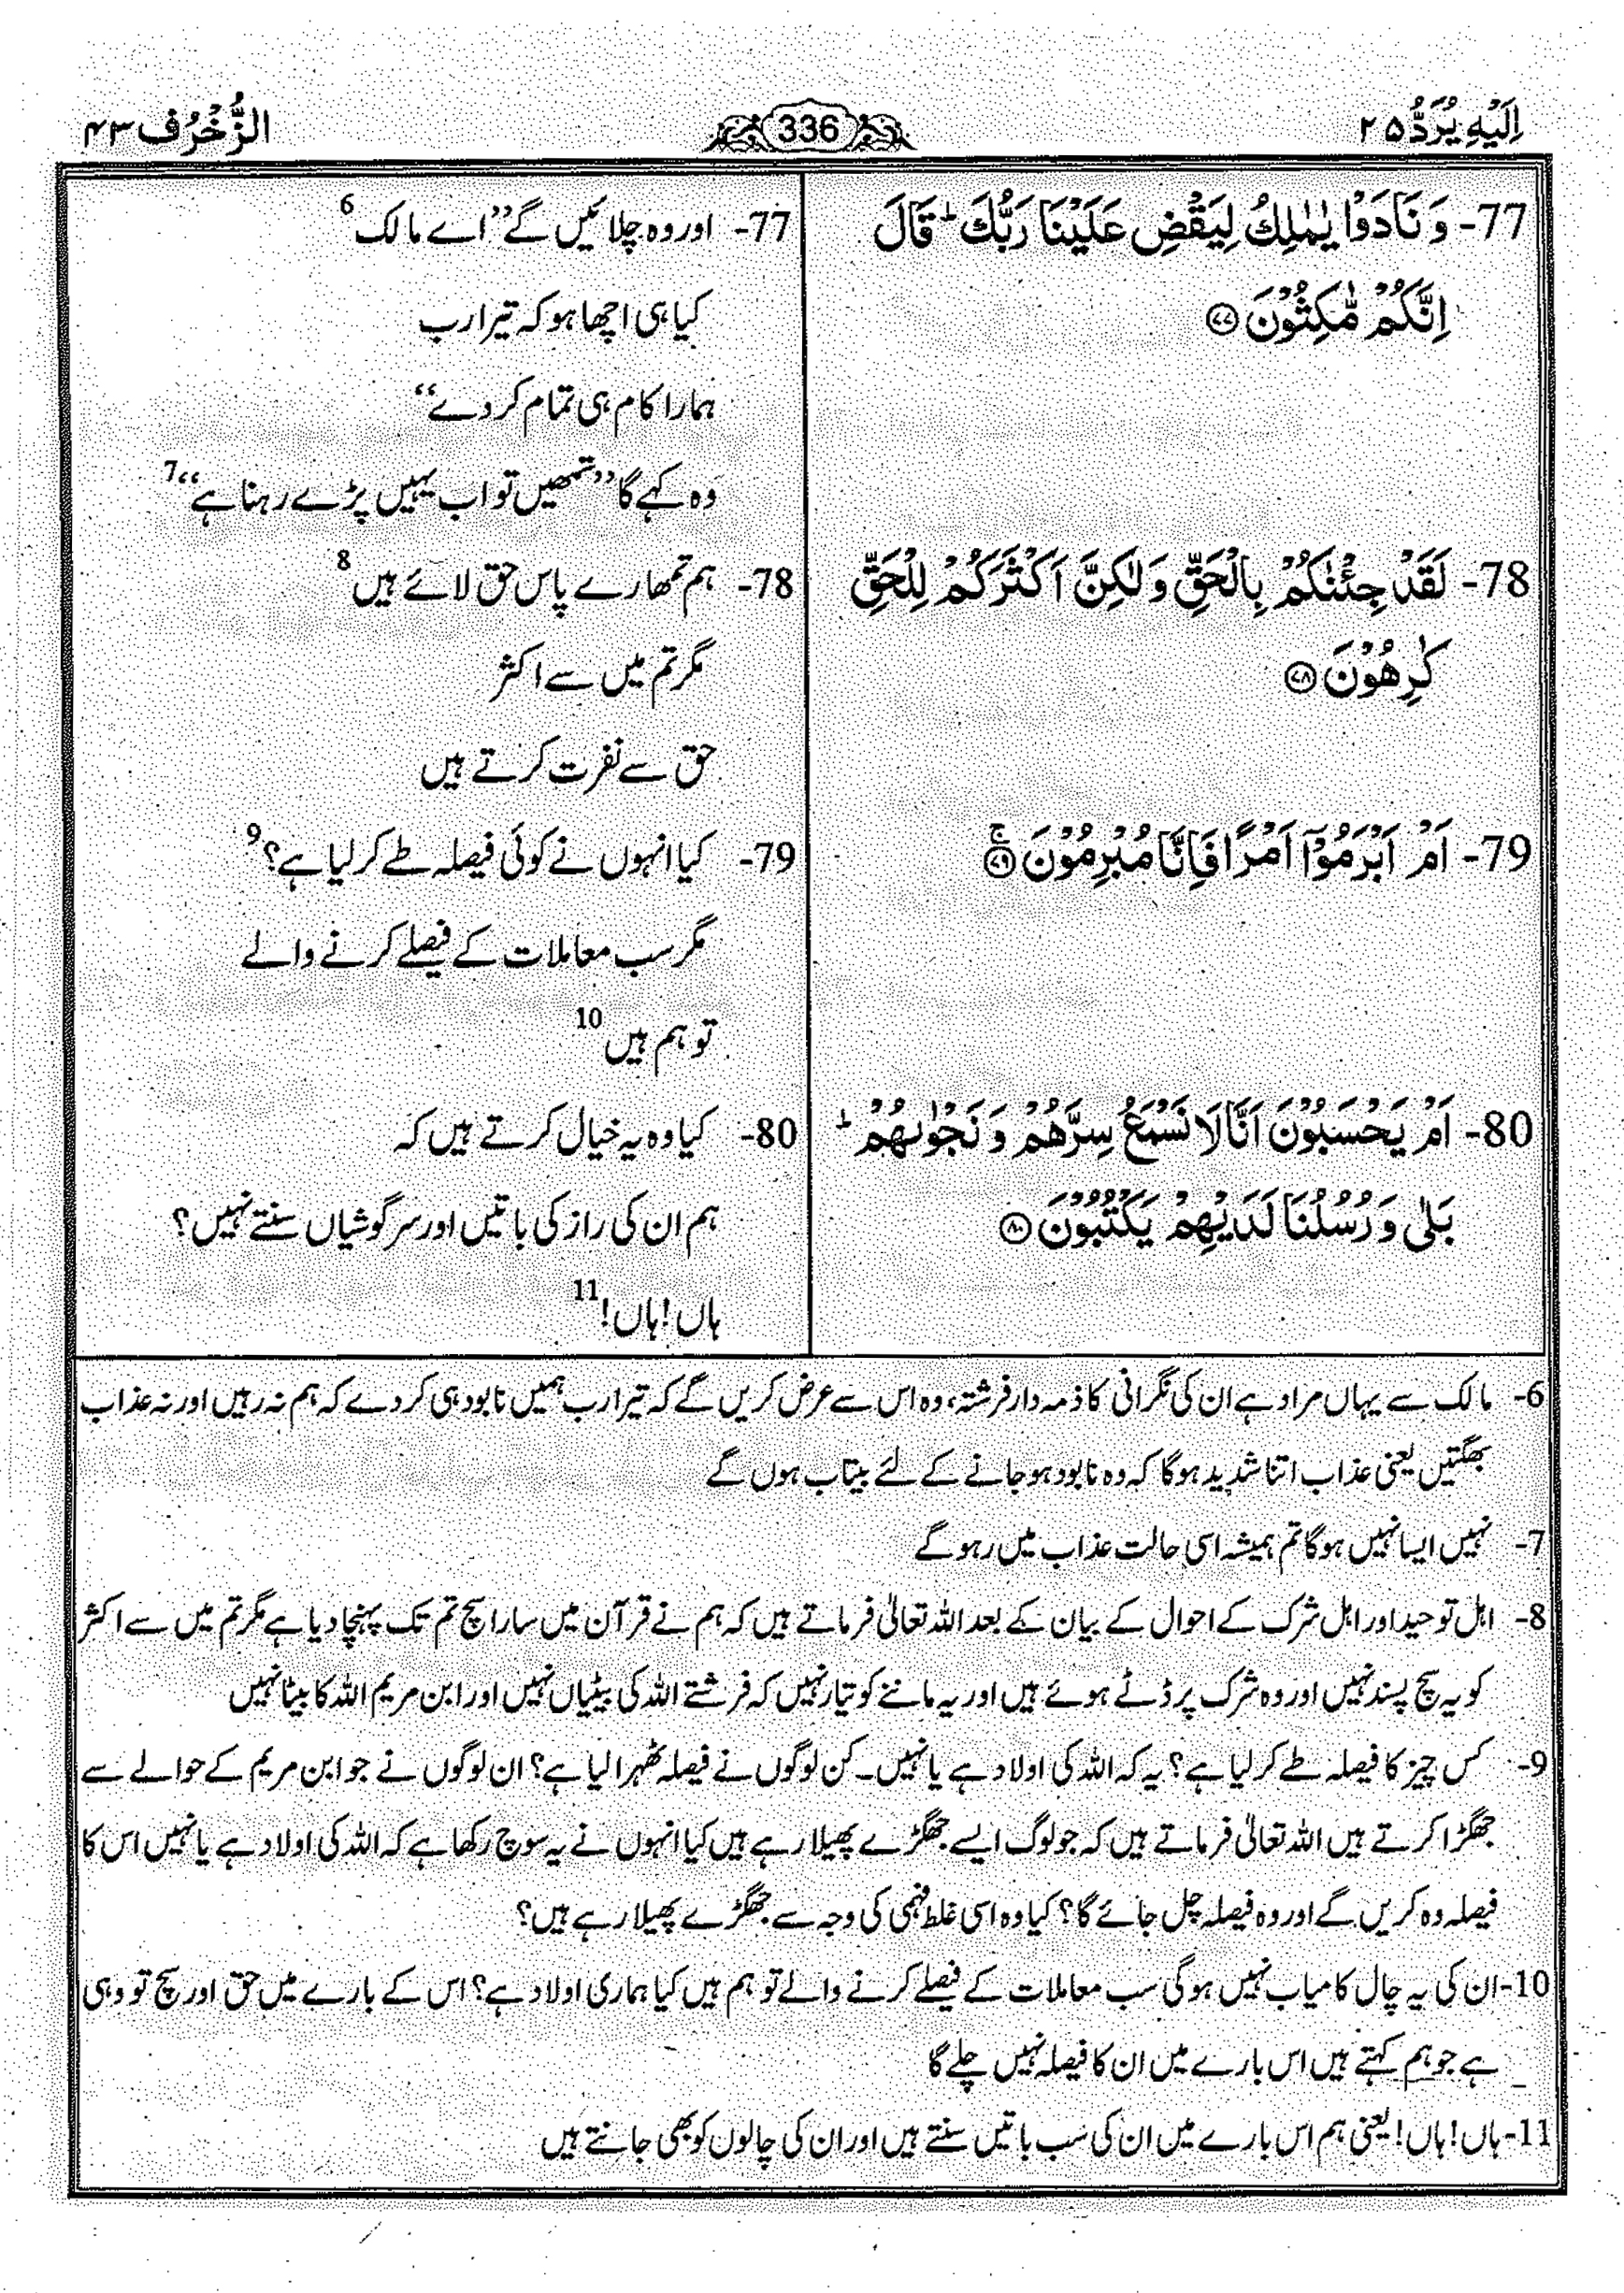 اِلَیْهِ یُرَدُّ ۲۵
336
الزُّخْرُف ۴۳
77- وَ نَادَوْا یٰمٰلِكُ لِیَقْضِ عَلَیْنَا رَبُّكَ ؕ قَالَ
اِنَّكُمْ مّٰكِثُوْنَ ۝۷۷
78- لَقَدْ جِئْنٰكُمْ بِالْحَقِّ وَ لٰكِنَّ اَكْثَرَكُمْ لِلْحَقِّ
كٰرِهُوْنَ ۝۷۸
79- اَمْ اَبْرَمُوْۤا اَمْرًا فَاِنَّا مُبْرِمُوْنَ ۝۷۹ۚ
80- اَمْ یَحْسَبُوْنَ اَنَّا لَا نَسْمَعُ سِرَّهُمْ وَ نَجْوٰىهُمْ ؕ
بَلٰی وَ رُسُلُنَا لَدَیْهِمْ یَكْتُبُوْنَ ۝۸۰
77- اور وہ چلائیں گے ’’اے مالک 6
کیا ہی اچھا ہو کہ تیرا رب
ہمارا کام ہی تمام کر دے‘‘
وہ کہے گا ’’تمھیں تو اب یہیں پڑے رہنا ہے‘‘ 7
78- ہم تمھارے پاس حق لائے ہیں 8
مگر تم میں سے اکثر
حق سے نفرت کرتے ہیں
79- کیا انہوں نے کوئی فیصلہ طے کر لیا ہے؟ 9
مگر سب معاملات کے فیصلے کرنے والے
تو ہم ہیں 10
80- کیا وہ یہ خیال کرتے ہیں کہ
ہم ان کی راز کی باتیں اور سرگوشیاں سنتے نہیں؟
ہاں! ہاں! 11
6- مالک سے یہاں مراد ہے ان کی نگرانی کا ذمہ دار فرشتہ، وہ اس سے عرض کریں گے کہ تیرا رب ہمیں نابود ہی کر دے کہ ہم نہ رہیں اور نہ عذاب
بھگتیں یعنی عذاب اتنا شدید ہوگا کہ وہ نابود ہو جانے کے لئے بیتاب ہوں گے
7- نہیں ایسا نہیں ہوگا تم ہمیشہ اسی حالت عذاب میں رہو گے
8- اہل توحید اور اہل شرک کے احوال کے بیان کے بعد اللہ تعالیٰ فرماتے ہیں کہ ہم نے قرآن میں سارا سچ تم تک پہنچا دیا ہے مگر تم میں سے اکثر
کو یہ سچ پسند نہیں اور وہ شرک پر ڈٹے ہوئے ہیں اور یہ ماننے کو تیار نہیں کہ فرشتے اللہ کی بیٹیاں نہیں اور ابن مریم اللہ کا بیٹا نہیں
9- کس چیز کا فیصلہ طے کر لیا ہے؟ یہ کہ اللہ کی اولاد ہے یا نہیں۔ کن لوگوں نے فیصلہ ٹھہرا لیا ہے؟ ان لوگوں نے جو ابن مریم کے حوالے سے
جھگڑا کرتے ہیں اللہ تعالیٰ فرماتے ہیں کہ جو لوگ ایسے جھگڑے پھیلا رہے ہیں کیا انہوں نے یہ سوچ رکھا ہے کہ اللہ کی اولاد ہے یا نہیں اس کا
فیصلہ وہ کریں گے اور وہ فیصلہ چل جائے گا؟ کیا وہ اسی غلط فہمی کی وجہ سے جھگڑے پھیلا رہے ہیں؟
10- ان کی یہ چال کامیاب نہیں ہوگی سب معاملات کے فیصلے کرنے والے تو ہم ہیں کیا ہماری اولاد ہے؟ اس کے بارے میں حق اور سچ تو وہی
ہے جو ہم کہتے ہیں اس بارے میں ان کا فیصلہ نہیں چلے گا
11- ہاں! ہاں! یعنی ہم اس بارے میں ان کی سب باتیں سنتے ہیں اور ان کی چالوں کو بھی جانتے ہیں